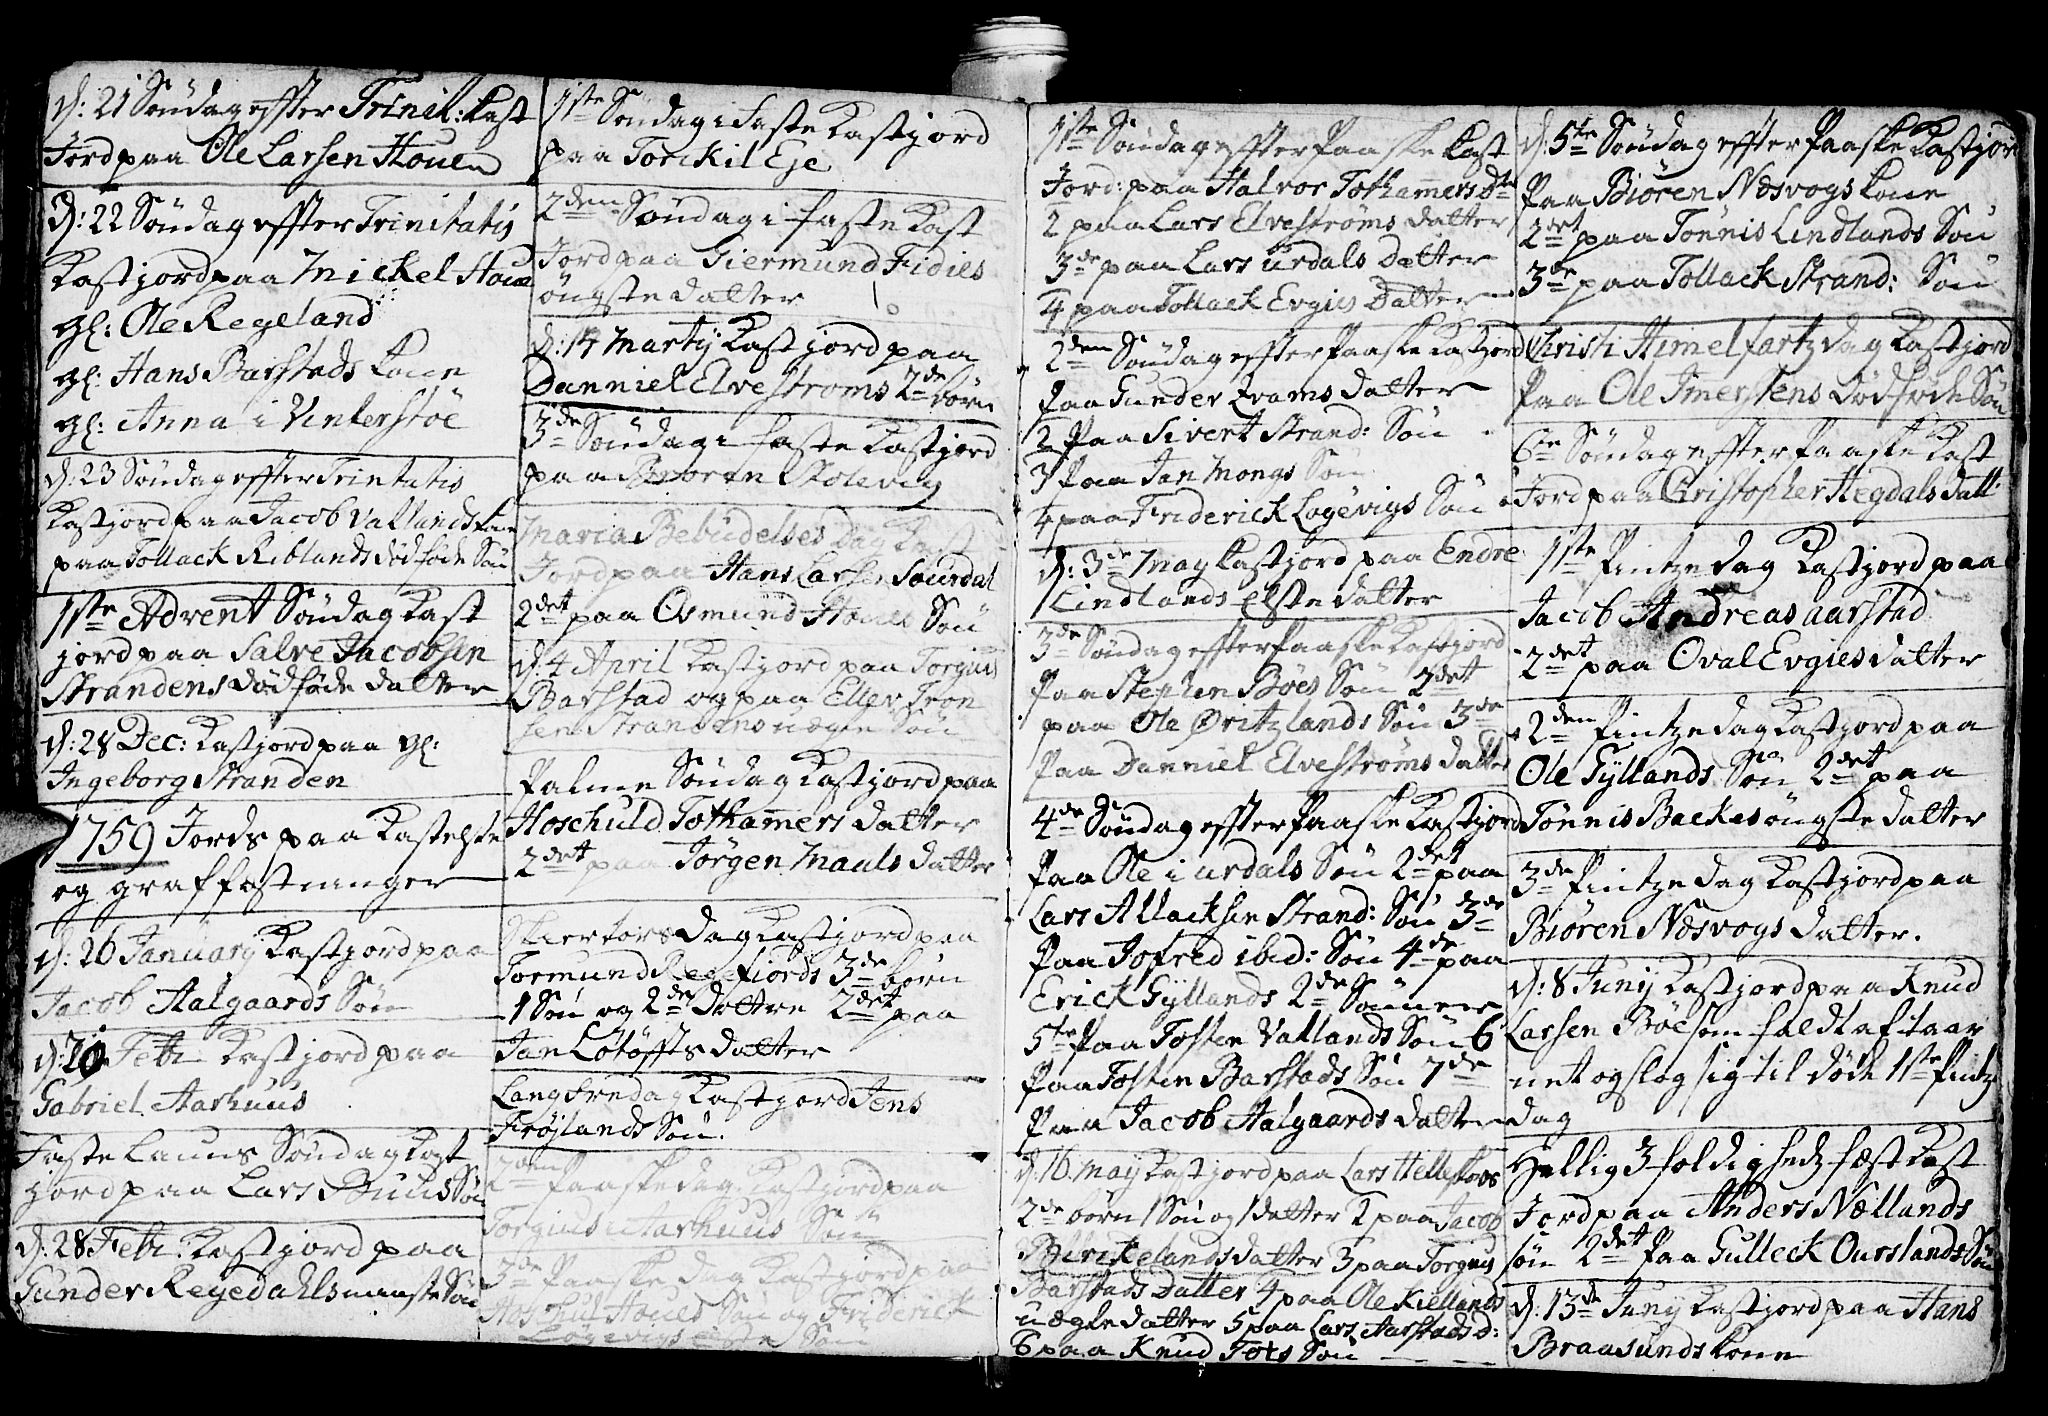 d: 21 Søndag effter Trinit: Kast
Jord paa Ole Larsen Houen
d: 22 Søndag effter Trinitatis
Kast jord paa Mickel Houe
gl: Ole Regeland
gl: Hans Barstads Kone
gl: Anna i Vinterstøe
d: 23 Søndag effter Trintatis
Kast jord paa Jacob Vatlands Kone
paa Tollack Riblands dødføde Søn
1ste Advent Søndag Kast
jord paa Salve Jacobsen
Strandens dødføde datter
d: 28 Dec: Kast jord paa gl:
Ingeborg Stranden
1759 Jords paa Kastelse
og graffæstninger
d: 26 January Kast jord paa
Jacob Aalgaards Søn
d: 20 Febr Kast jord paa
Gabriel Aarhuus
Faste Launs Søndag Kast
jord paa Lars Buus Søn
d: 28 Febr: Kast jord paa
Gunder Regedahls Søn
1ste Søndag i Faste Kast jord
paa Torckil Eje
2den Søndag i faste Kast
Jord paa Giermund Fidies
øngste datter
d: 14 Marty Kast jord paa
Danniel Elvestroms 2de børn
3de Søndag i faste Kast jord
paa Bioren Skolevig
Maria Bebudelses Dag Kast
Jord paa Hans Larsen Suurdal
2det paa Osmund Houes Søn
d: 4 April Kast jord paa Torgius
Barstad og paa Eller Tron
sen Strandens uægte Søn
Palme Søndag Kast jord paa
Hoschuld Tothamers datter
2det paa Jørgen Mauls datter
Skiertors dag Kast jord paa
Tormund Regefiords 3de børn
1 Søn og 2de døttre 2det paa
Jan Lotøffts datter
Lang fredag Kast jord Jens
Frøjlands Søn.
2den Paaske dag Kast jord paa
Torgius Aarhuus Søn
3de Paaske dag Kast jord paa
Hoschul Houes Søn og Friderick
Løgevigs Søn
1ste Søndag effter Paaske Kast
Jord: paa Halvor Tothamers Dtr
2 paa Lars Elvestrøms datter
3de paa Lars Urdals Datter
4 paa Tollack Evgies Datter
2den Søndag effter Paaske Kast jord
Paa Gunder Qvams datter
2 Paa Sivert Strand: Søn
3 Paa Jan Mongs Søn
4 paa Friderick Løgevigs Søn
d: 3de May Kast jord paa Endre
Lindlands elste datter
3de Søndag effter Paaske Kast jord
Paa Stephen Bøes Søn 2det
paa Ole Øritzlands Søn 3de
Paa Danniel Elvestrøms datter
4de Søndag effter Paaske Kast jord
Paa Ole i Urdals Søn 2det paa
Lars Allacksen Strand: Søn 3de
Paa Jofred ibid: Søn 4de paa
Erick Gyllands 2de Sønner
5te Paa Tosten Vatlands Søn 6
Paa Tosten Barstads Søn 7de
Paa Jacob Aalgaards datter
d: 16 May Kast jord paa Lars Hellestøes
2de børn 1 Søn og 1 datter 2 paa Jacob
Birckelands datter 3 paa Torgius
Barstads Datter 4 paa Ole Kiellands
uægte datter 5 paa Lars Aarstads d:
6 paa Knud Tots Søn
d: 5te Søndag effter Paaske Kast jord
Paa Biøren Næsvogs Kone
2det paa Tønnis Lindlands Søn
3de paa Tollack Strand: Søn
Christi Himelfartz dag Kast jord
Paa Ole Imersens dødføde Søn
6te Søndag effter Paaske Kast
Jord paa Christopher Hegdals datt:
1ste Pintze dag Kast jord paa
Jacob Andreas Aarstad
2det paa Oval Evgies datter
2den Pintze dag Kast jord paa
Ole Gyllands Søn 2det paa
Tønnis Backes øngste datter
3de Pintze dag Kast jord paa
Biøren Næsvogs datter.
d: 8 Juny Kast jord paa Knud
Larsen Bøe som faldt af taar
net og slog sig til døde 1ste Pintz
dag
Hellig 3 foldigheds fæst Kast
Jord paa Anders Nællands
søn 2det Paa Gulleck Ourslands Søn
d: 13de Juny Kast jord paa Hans
Braasunds Kone